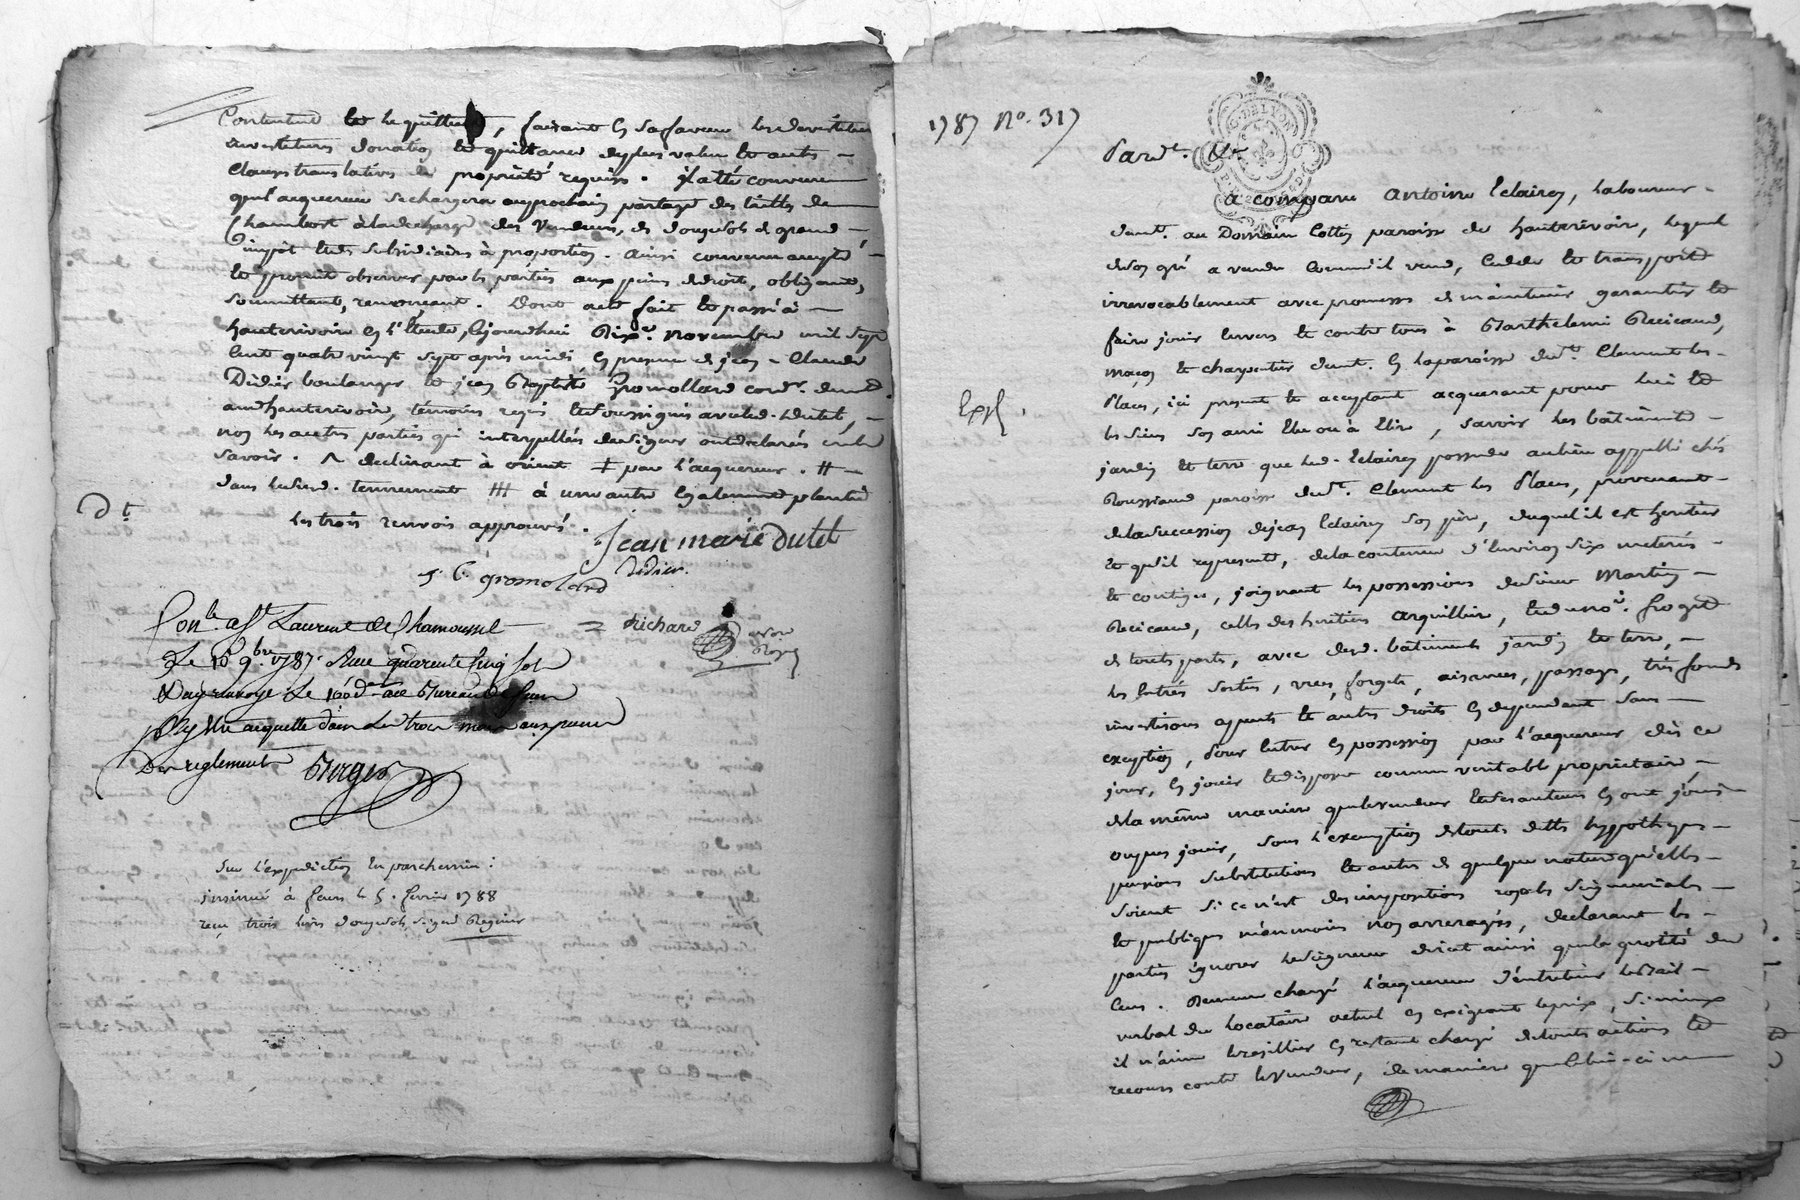 Contentes et le quittent, faisant en sa faveur les devestitures
investitures donation et quittance de plus value et autres
clauses translatives de propriété requises. Il a été convenu
que l'acquereur se chargera au prochain partage des tailles de
Chambost à la decharge des vendeurs, de douze sols de grand
impot et des subsidiaires à proportion. Ainsi convenu accepté
et promit observer par les parties aux peines de droit, obligeant,
soumettant, renonçant. Dont acte fait et passé à
hauterivoire en l'Etude, ce jourd'hui dix novembre mil sept
cent quatre vingt sept après midi, en presence de jean-Claude
Didier boulanger et jean Baptiste Gromollard cord.r demt
aud hauterivoire, temoins requis et soussignés avec led. dutel,
non les autres parties qui interpellées de signer ont declarés ne le
savoir. declinant à orient ‡ par l'acquereur. #
dans led. tennement ### à un autre egalement planté
Dt
les trois renvois approuvés.
Jean marie dutel
J. C. gromolard
Didier.
Conle a St Laurent de Chamousset
Richard
Le 16 9bre 1787. Reçu quarente cinq sols
& Renvoyé le 100e d. au Bureau de
dans les trois mois aux peines
Des reglements Berger
Sur l'expedition en parchemin:
insinué à feurs le 5. fevrier 1788
reçu trois livres douze sols, signé Regnier
1787 No. 317
G. DE LYON
Pardt. &c
A comparu Antoine Eclairon, laboureur
demt. au Domaine Collin paroisse de hauterivoire, lequel
de son gré a vendu comme il vend, cedde et transporte
irrevocablement avec promesse de maintenir garantir et
faire jouir envers et contre tous à Barthelemi Recicaud,
maçon et charpentier demt. en la paroisse de St. Clement les
Places, ici present et acceptant acquerant pour lui et
Expé.
les siens son ami elu ou à elire, savoir les bâtiments
jardin et terre que led. Eclairon possede au lieu appellé chés
Roussiaud paroisse de St. Clement les Places, provenant
de la succession de jean Eclairon son père, duquel il est heritier
et qu'il represente, de la contenue d'environ six meterés
et contigu, joignant les possessions de sieur Martin
Recicaud, celles des heritiers arquillier, et de
de touts parts, avec lesd. batiments jardin et terre,
les entrées sorties, vues, forgets, aisances, passages, très fonds
investisons appents et autres droits en dependant sans
exception, Pour entrer en possession par l'acquereur dès ce
jour, en jouir et disposer comme veritable proprietaire,
de la même maniere que le vendeur et ses auteurs en ont joui
ou pu jouir, sous l'exemption de touts dettes hypotheques
pensions substitutions et autres de quelque nature qu'elles
soient si ce n'est des impositions royales seigneuriales
et publiques néanmoins non arreragés, declarant les
parties ignorer le seigneur direct ainsi que la quotité du
cens. Demeure chargé l'acquereur d'entretenir le bail
verbal du locataire actuel en exigeant le prix, si mieux
il n'aime le resillier en restant chargé de touts actions et
recours contre le vendeur, de maniere que celui-ci ne